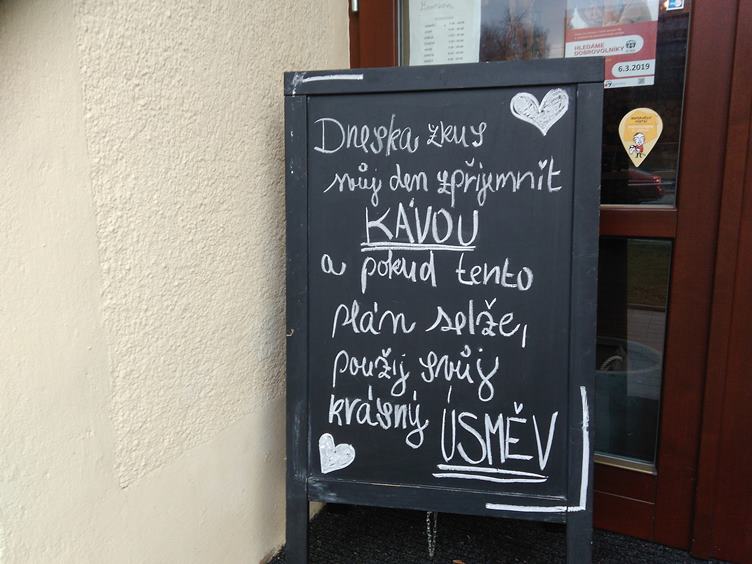 HLEDÁME
DOBROVOLNÍKY
6.3.2019
Dneska zkus
svůj den zpříjemnit
KÁVOU
a pokud tento
plán selže,
použij svůj
krásný ÚSMĚV